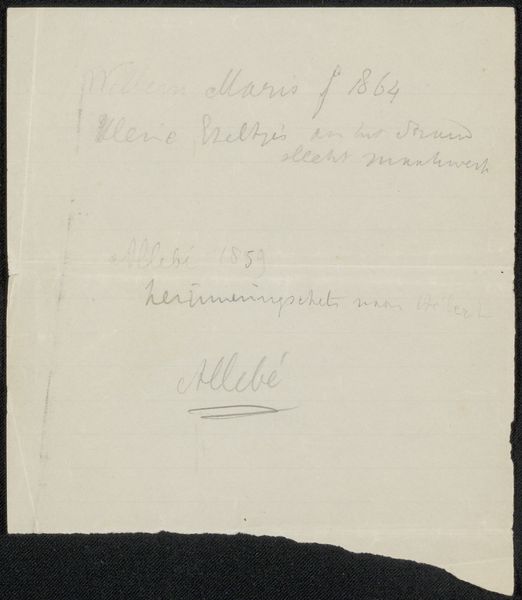 Willem Maris f 1864
Kleine Ezeltjes aan het Strand
slecht maakwerk
Allebé 1859
herinneringschets naar
Allebé